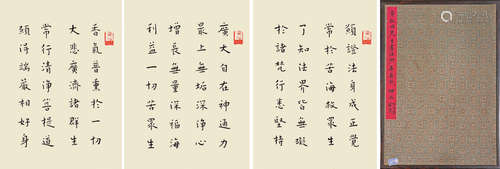 願證法身成正覺
常於苦海救眾生
了知法界皆無礙
於諸梵行悉堅持
廣大自在神通力
最上無垢深淨心
增長無量深福海
利益一切苦眾生
香氣普熏於一切
大悲廣濟諸群生
常行清淨菩提道
得端嚴相好身